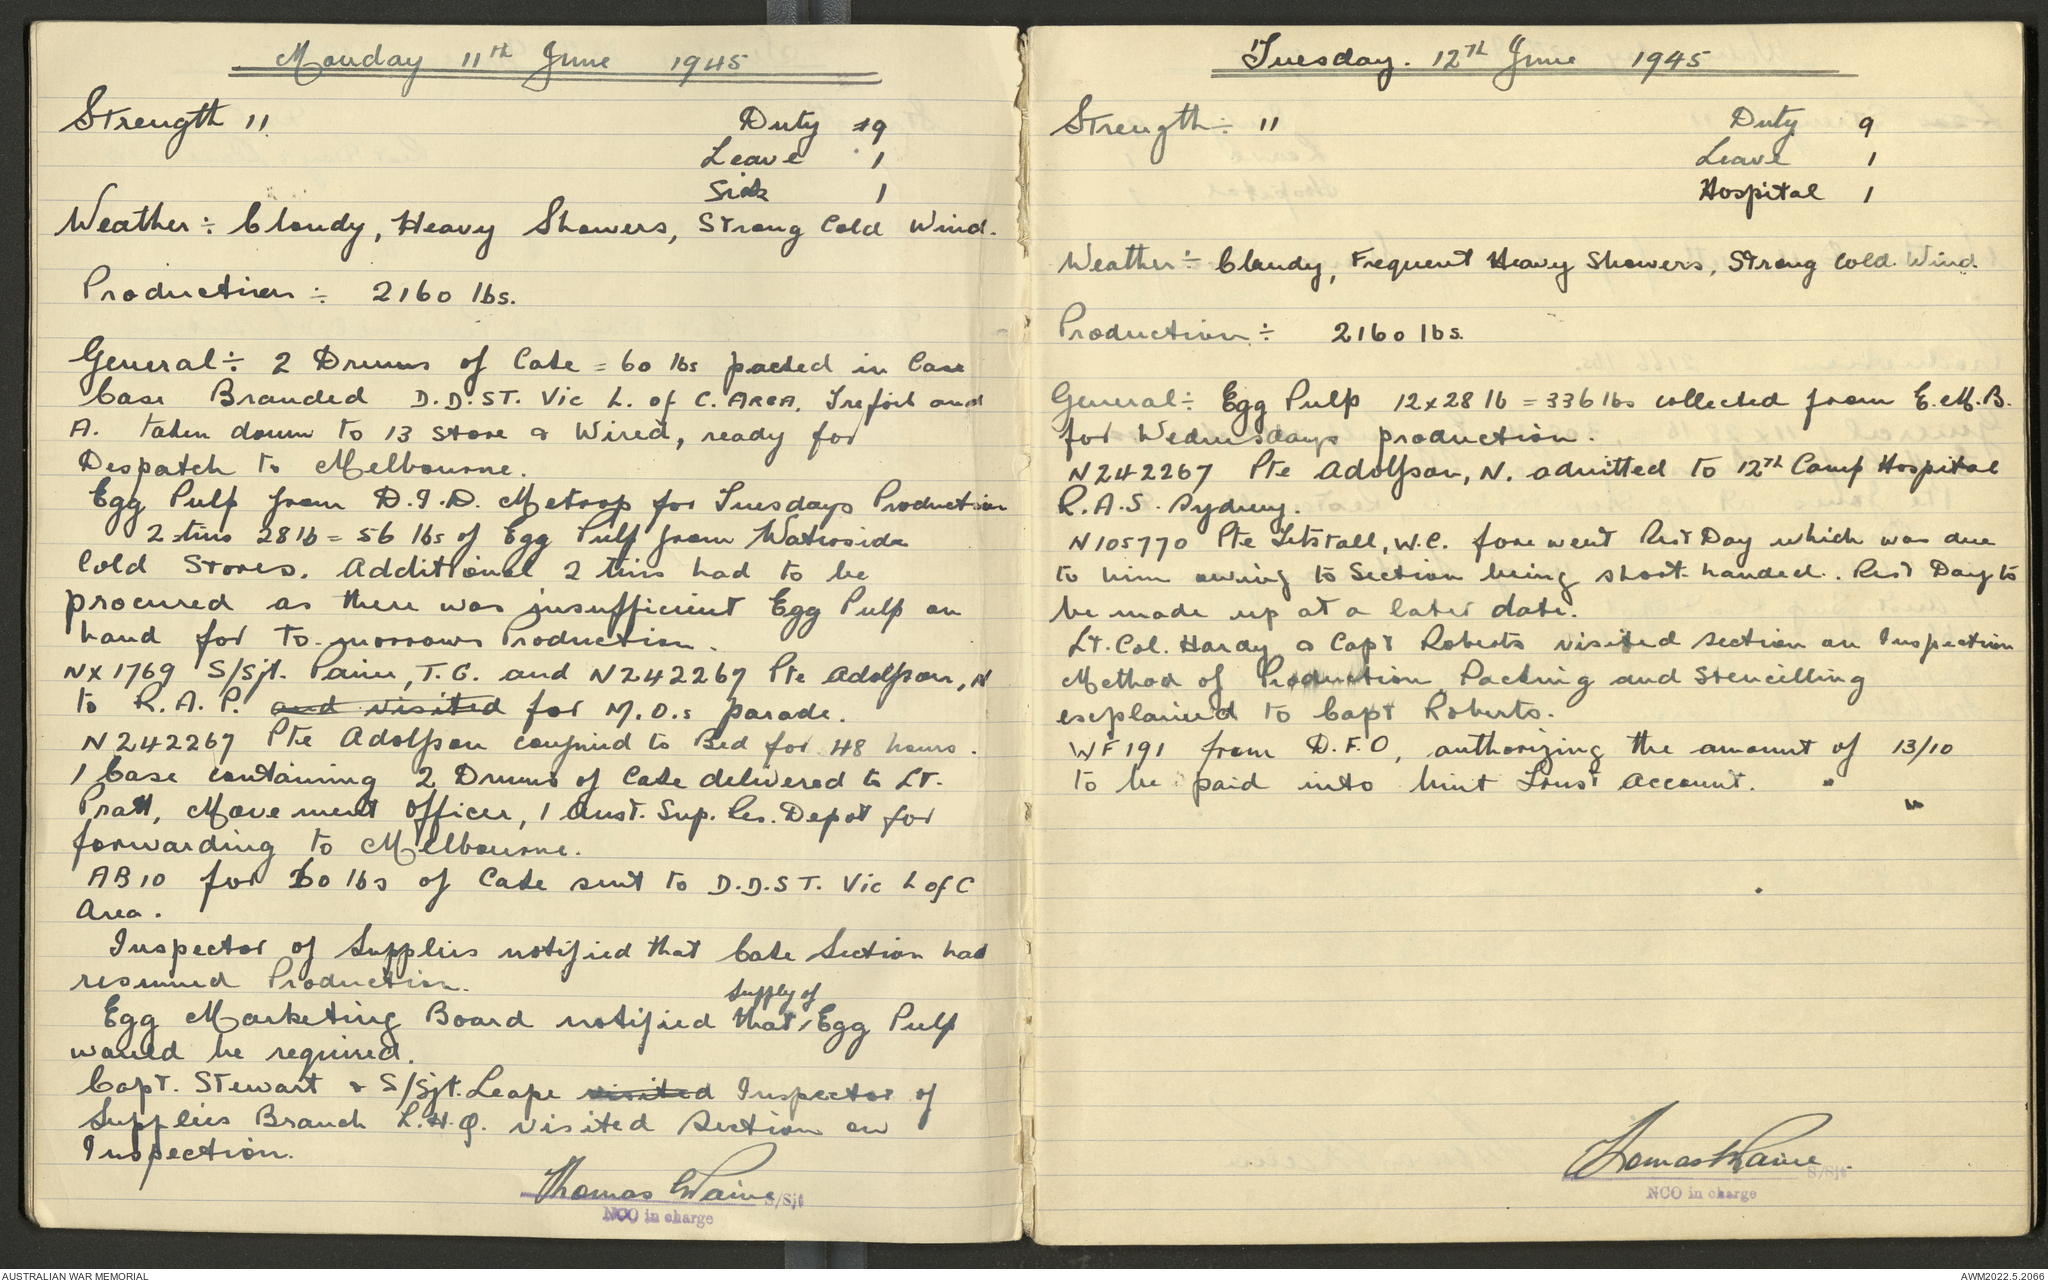 Monday 11th June 1945
Strength 11 Duty 9
Leave 1
Sick 1
Weather ÷ Cloudy, Heavy Showers, Strong Cold Wind.
Production ÷ 2160 lbs.
General ÷ 2 Drums of Cake = 60 lbs packed in Case
Case Branded D.D.ST. Vic L. of C. AREA. and
A. taken down to 13 Store & Wired, ready for
Despatch to Melbourne.
Egg Pulp from D.I.D. Metrop for Tuesdays Production
2 tins 28 lb = 56 lbs of Egg Pulp from Waterside
Cold Stores. Additional 2 tins had to be
procured as there was insufficient Egg Pulp on
hand for To-morrows Production.
NX1769 S/Sjt. Paine, T.G. and N242267 Pte Adolfson, N
to R.A.P. and visited for M.O.s parade.
N242267 Pte Adolfson confined to Bed for 48 hours.
1 Case containing 2 Drums of Cake delivered to Lt.
Pratt, Movement Officer, 1 Aust. Sup. Res. Depot for
forwarding to Melbourne.
AB10 for 60 lbs of Cake sent to D.D.ST. Vic L of C
Area.
Inspector of Supplies notified that Cake Section had
resumed Production.
supply of
Egg Marketing Board notified that, Egg Pulp
would be required.
Capt. Stewart & S/Sjt. Leape visited Inspector of
Supplies Branch L.H.Q. visited Section on
Inspection.
Thomas G Paine S/Sjt
NCO in charge
Tuesday. 12TH June 1945
Strength ÷ 11 Duty 9
Leave 1
Hospital 1
Weather ÷ Cloudy, Frequent Heavy Showers, Strong Cold Wind.
Production ÷ 2160 lbs.
General ÷ Egg Pulp 12x28 lb = 336 lbs collected from E.M.B.
for Wednesdays production.
N242267 Pte Adolfson, N. admitted to 12th Camp Hospital
R.A.S. Sydney.
N105770 Pte W.C. forewent Rest Day which was due
to him owing to Section being short-handed. Rest Day to
be made up at a later date.
Lt. Col. Hardy & Capt Roberts visited section on Inspection
Method of Production Packing and Stencilling
explained to Capt Roberts.
WF191 from D.F.O, authorizing the amount of 13/10
to be paid into Unit Trust Account.
Thomas G Paine S/Sjt
NCO in charge
AUSTRALIAN WAR MEMORIAL
AWM2022.5.2066